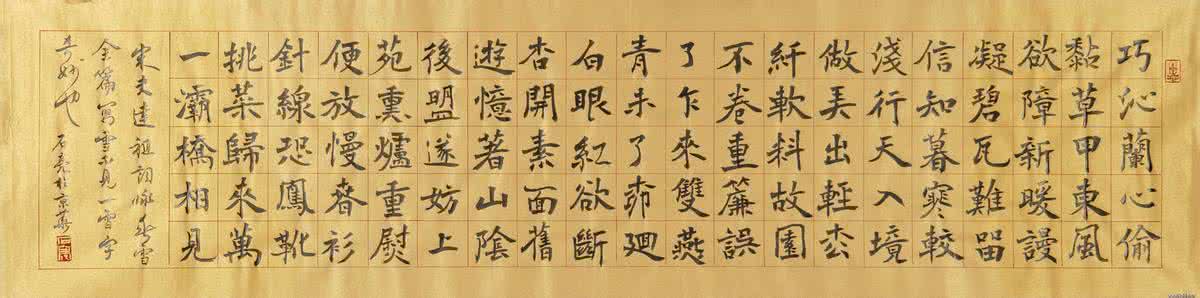 巧沁蘭心偷
黏草甲東風
欲障新暖謾
凝碧瓦難畱
信知暮寒較
淺行天入境
做弄出輕枩
纤軟料故園
不卷重簾誤
了乍來雙燕
青未了桺廻
白眼紅欲斷
杏開素面舊
遊憶著山陰
後盟遂妨上
苑熏爐重熨
便放慢春衫
針線恐鳳靴
挑菜歸來萬
一灞橋相見
宋史達祖詞詠春雪
全篇寫雪不見一雪字
奇妙也 石亮於京華